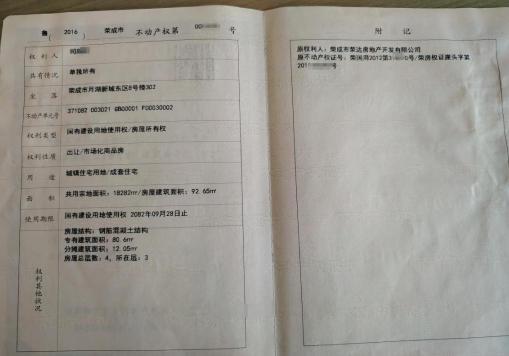 鲁(2016 荣成市 不动产权第00 号
权利人 司
共有情况 单独所有
坐落 荣成市月湖新城东区8号楼302
不动产单元号 371082 003021 GB00001 F00030002
权利类型 国有建设用地使用权/房屋所有权
权利性质 出让/市场化商品房
用途 城镇住宅用地/成套住宅
面积 共用宗地面积:18282㎡/房屋建筑面积:92.65㎡
使用期限 国有建设用地使用权 2082年09月28日止
权利其他状况
房屋结构:钢筋混凝土结构
专有建筑面积:80.6㎡
分摊建筑面积:12.05㎡
房屋总层数:4,所在层:3
附记
原权利人:荣成市荣达房地产开发有限公司
原不动产权证号:荣国用2012第3 0号/荣房权证崖头字第
201 号